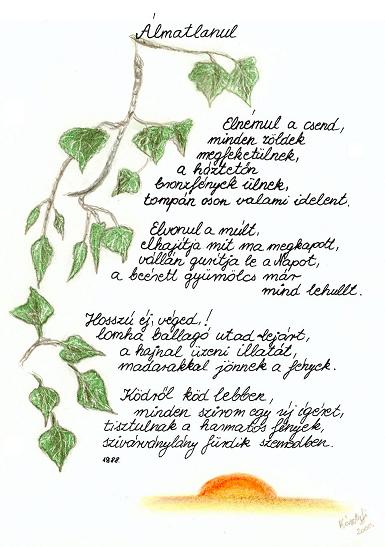 Álmatlanul
Elnémul a csend,
minden zöldek
megfeketülnek,
a háztetőn
bronzfények ülnek,
tompán oson valami idelent.
Elvonul a múlt,
elhajítja mit ma megkapott,
vállán gurítja le a Napot,
a beérett gyümölcs már
mind lehullt.
Hosszú éj, véged,!
lomha ballagó utad lejárt,
a hajnal üzeni illatát,
madarakkal jönnek a fények.
Ködről köd lebben,
minden szirom egy új ígéret,
tisztulnak a harmatos fények,
szivárványlány fürdik szemedben.
1988.
2000.